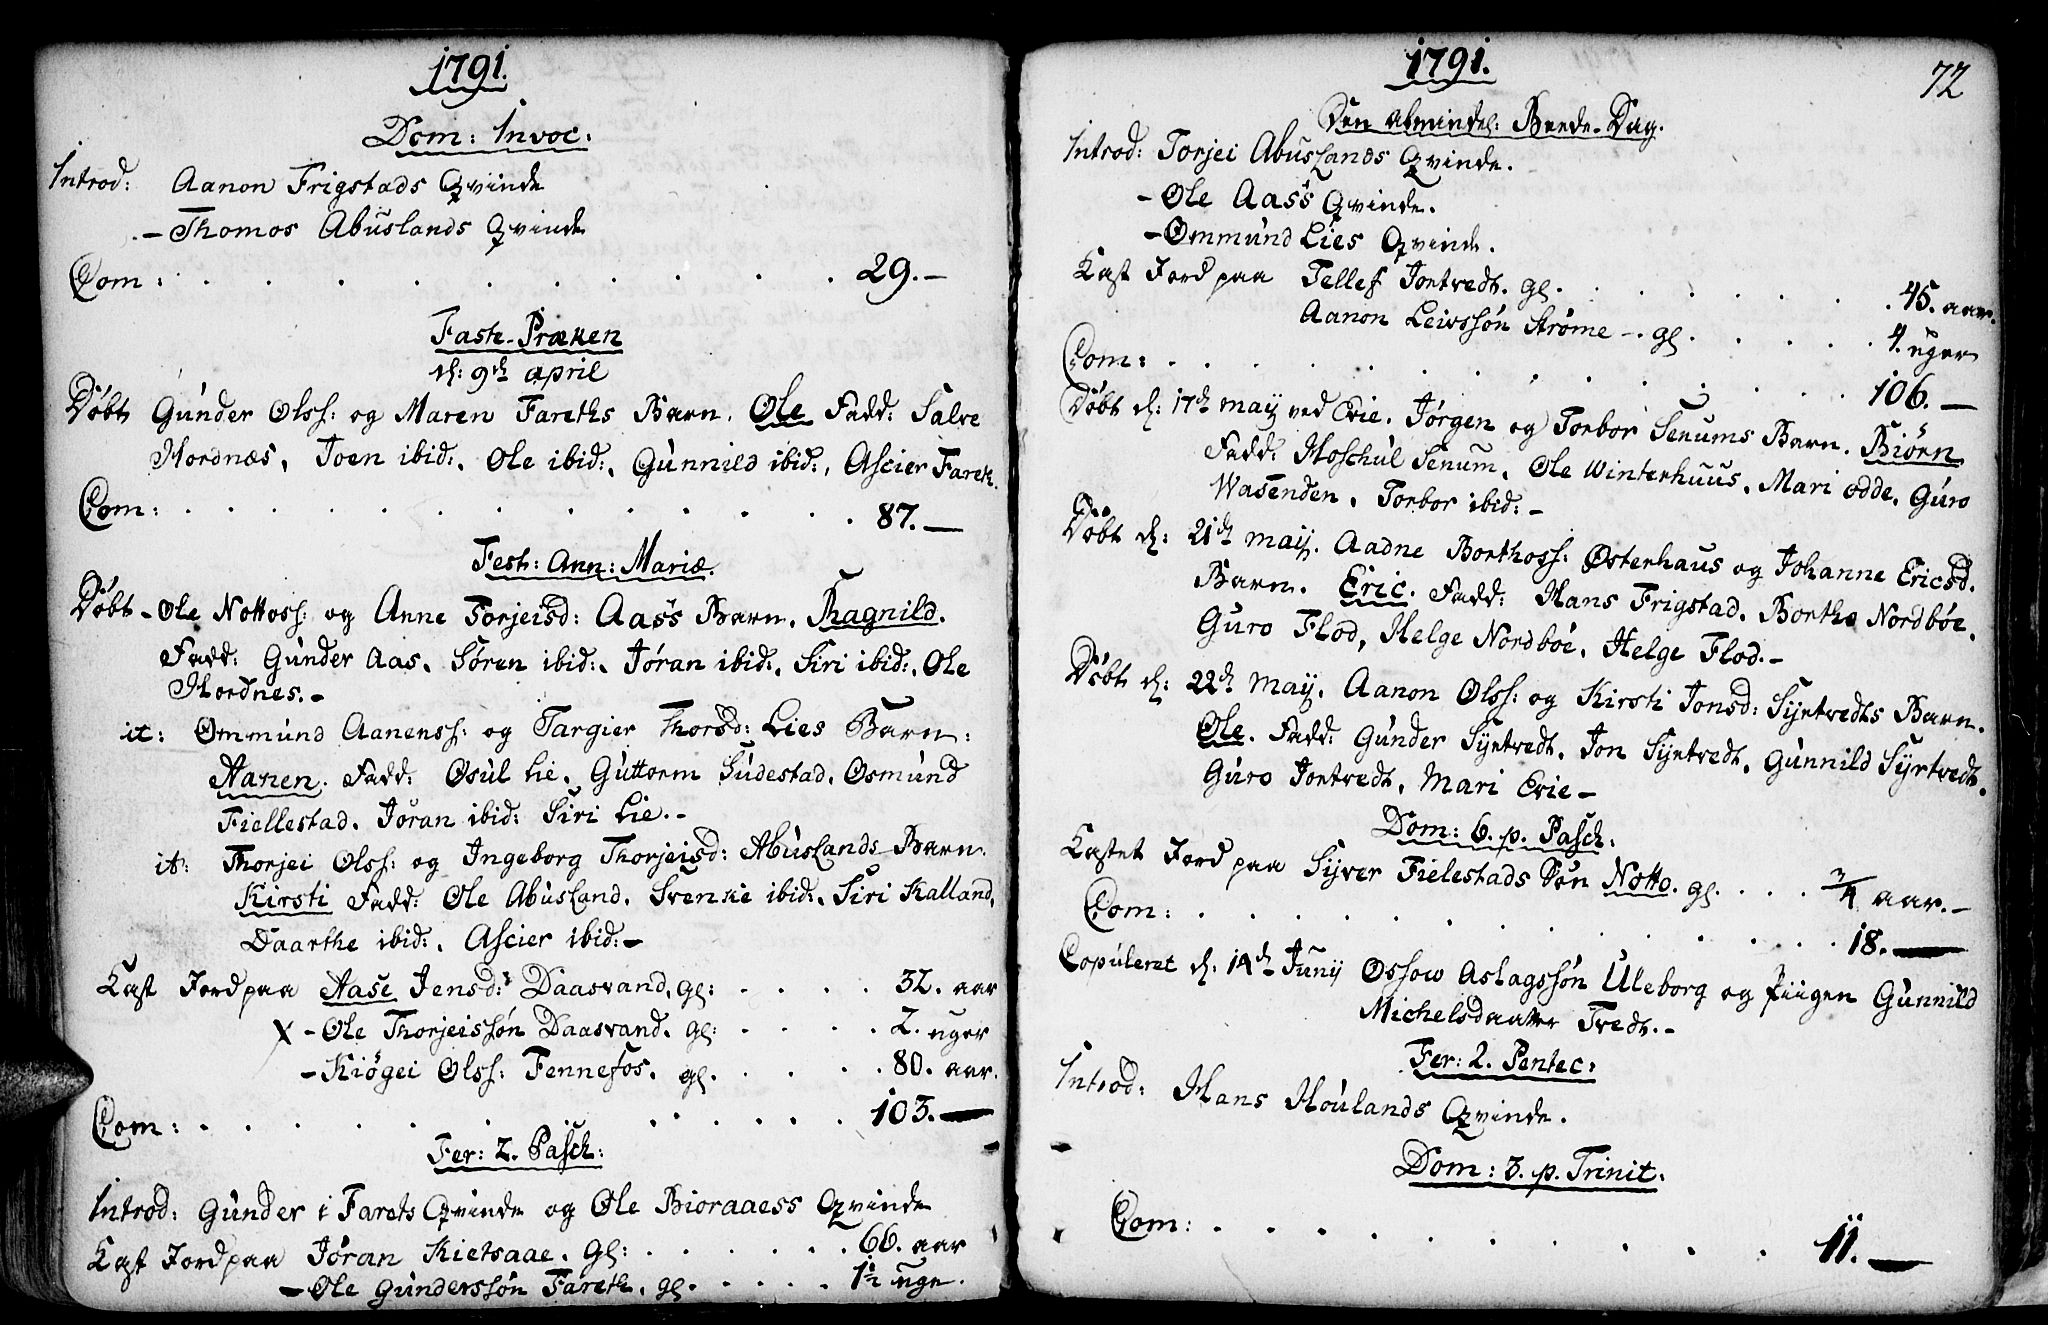 1791.
Dom: Invoc:
Introd: Aanon Frigstads Qvinde
- Thomos Abuslands Qvinde
Com: . . . . . . . . . 29.-
Fast-Præken
d: 9de april
Døbt Gunder Olss: og Maren Fareths Barn. Ole Fadd: Salve
Hordnæs, Joen ibid:, Ole ibid:, Gunnild ibid:, Ascier Fareth.
Com: . . . . . . . . . 87.-
Fest: Ann: Mariæ.
Døbt - Ole Nottoss: og Anne Torjeisd: Aass Barn. Ragnild.
Fadd: Gunder Aas, Søren ibid:, Jøran ibid:, Siri ibid:, Ole
Hordnes.-
it: Ommund Aanenss: og Targier Thorsd: Lies Barn:
Aanen. Fadd: Osul Lie, Guttorm Sudestad, Osmund
Fiellestad, Jøran ibid: Siri Lie.-
it: Thorjei Olss: og Ingeborg Thorjeisd: Abuslands Barn.
Kirsti Fadd: Ole Abusland, Svenke ibid:, Siri Kalland,
Daarthe ibid:, Ascier ibid:-
Kast Jord paa Aase Jensd: Daasvand, gl: . . . . 32. aar
X - Ole Thorjeissøn Daasvand. gl: . . . . 2. uger
- Kiøgei Olss: Fennefos. gl. . . . . 80. aar.
Com: . . . . . . . . . 103.-
Fer: 2. Pasch:
Introd: Gunder i Farets Qvinde og Ole Bioraaess Qvinde
Kast Jord paa Jøran Kietsaae. gl: . . . . . . 66. aar
- Ole Gunderssøn Fareth. gl. . . . . 1½ uge.
1791. 72
Den Almindel: Beede-Dag.
Introd: Torjei Abuslands Qvinde.
- Ole Aass Qvinde.
- Ommund Lies Qvinde.
Kast Jord paa Tellef Jortvedt. gl. . . . . . . 45. aar.
Aanon Leivssøn Strøme -. gl. . . . . 4. uger
Com: . . . . . . . . . 106.-
Døbt d: 17de maij ved Evie. Jørgen og Torbor Senums Barn. Biørn
Fadd: Hoschul Senum, Ole Winterhuus, Mari Odde, Guro
Wasenden, Torbor ibid:-
Døbt d: 21de maij. Aadne Borthoss: Østerhaus og Johanne Ericsd.
Barn. Eric. Fadd: Hans Frigstad, Borthe Nordbøe,
Guro Flod, Helge Nordbøe, Helge Flod.-
Døbt d: 22de maij. Aanon Olss: og Kirsti Jonsd: Syrtvedts Barn.
Ole. Fadd: Gunder Syrtvedt, Jon Syrtvedt, Gunnild Syrtvedt,
Guro Jortvedt, Mari Evie-
Dom: 6. p. Pasch:
Kastet Jord paa Syver Fielestads Søn Notto. gl. . . . 3/4 aar.-
Com: . . . . . . . . . 18.-
Copuleret d: 14de Junij Ossow Aslagssøn Uleborg og Piigen Gunnild
Michelsdaatter Tvedt.-
Fer: 2. Pentec:
Introd: Hans Houlands Qvinde.
Dom: 3. p. Trinit:
Com: . . . . . . . . . 11.-